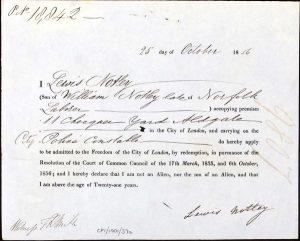 No 19842
25 day of October 1856
I Lewis Notley
(Son of William Notley late of Norfolk
Laborer ) occupying premises
11 Chequer Yard Aldgate
in the City of London, and carrying on the
City Police Constable do hereby apply
to be admitted to the Freedom of the City of London, by redemption, in pursuance of the
Resolution of the Court of Common Council of the 17th March, 1835, and 6th October,
1856; and I hereby declare that I am not an Alien, nor the Son of an Alien, and that
I am above the age of Twenty-one years.
Lewis Notley
Witness